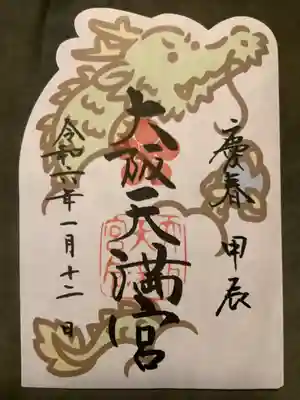 慶春 甲辰
大阪天満宮
令和六年一月十二日